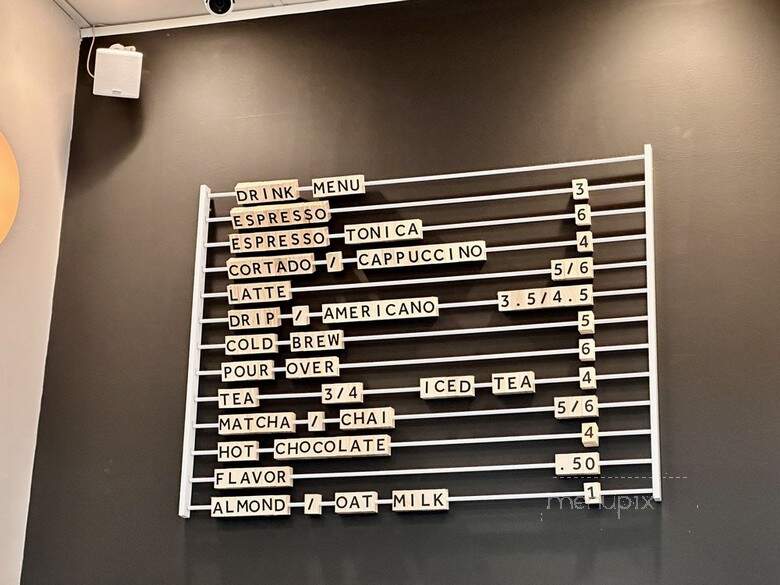 DRINK MENU
ESPRESSO 3
ESPRESSO TONICA 6
CORTADO / CAPPUCCINO 4
LATTE 5/6
DRIP / AMERICANO 3.5/4.5
COLD BREW 5
POUR OVER 6
TEA 3/4 ICED TEA 4
MATCHA / CHAI 5/6
HOT CHOCOLATE 4
FLAVOR .50
ALMOND / OAT MILK 1
menupix